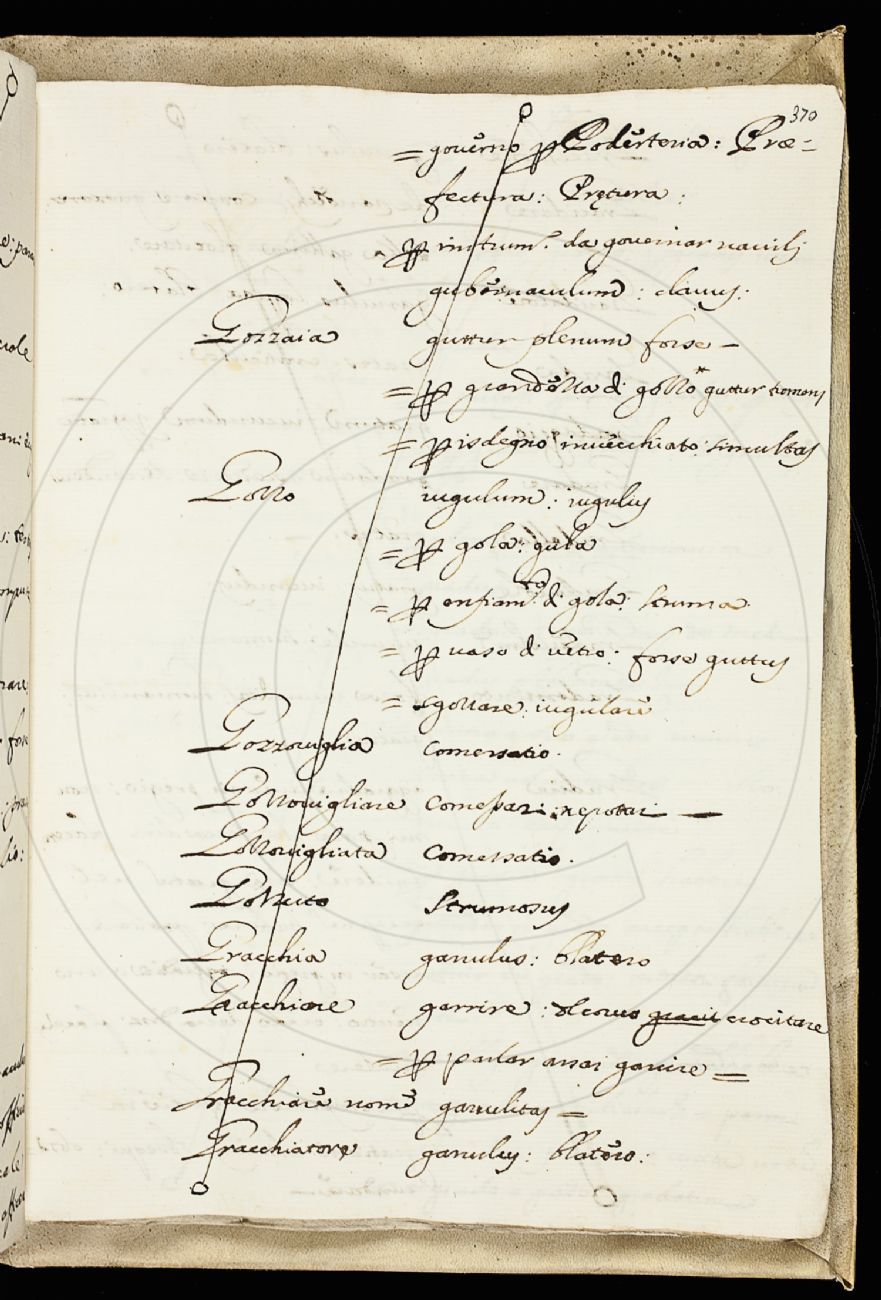 370
= governo ꝑ Podesteria: Præ=
fectura: Prętura:
ꝑ instrum.ᵗ da governar navilij
gubernaculum: clavus:
Gozzaia guttur plenum forse –
= ꝑ grandezza di gozzo guttur tumens
= ꝑ isdegno invecchiato: simultas
Gozzo iugulum: iugulus
= ꝑ gola: gula
= ꝑ enfiam:ᵗᵒ di gola: struma
= ꝑ vaso di vetro: forse guttus
= sgozzare: iugulare
Gozzoviglia comessatio.
Gozzovigliare comessari: nepotari —
Gozzovigliata Comessatio.
Gozzuto Strumosus
Gracchia garrulus: blatero
Gracchiare garrire: del corvo gracit crocitare
= ꝑ parlar assai garrire =
Gracchiare nome garrulitas =
Gracchiatore garrulus: blatero: